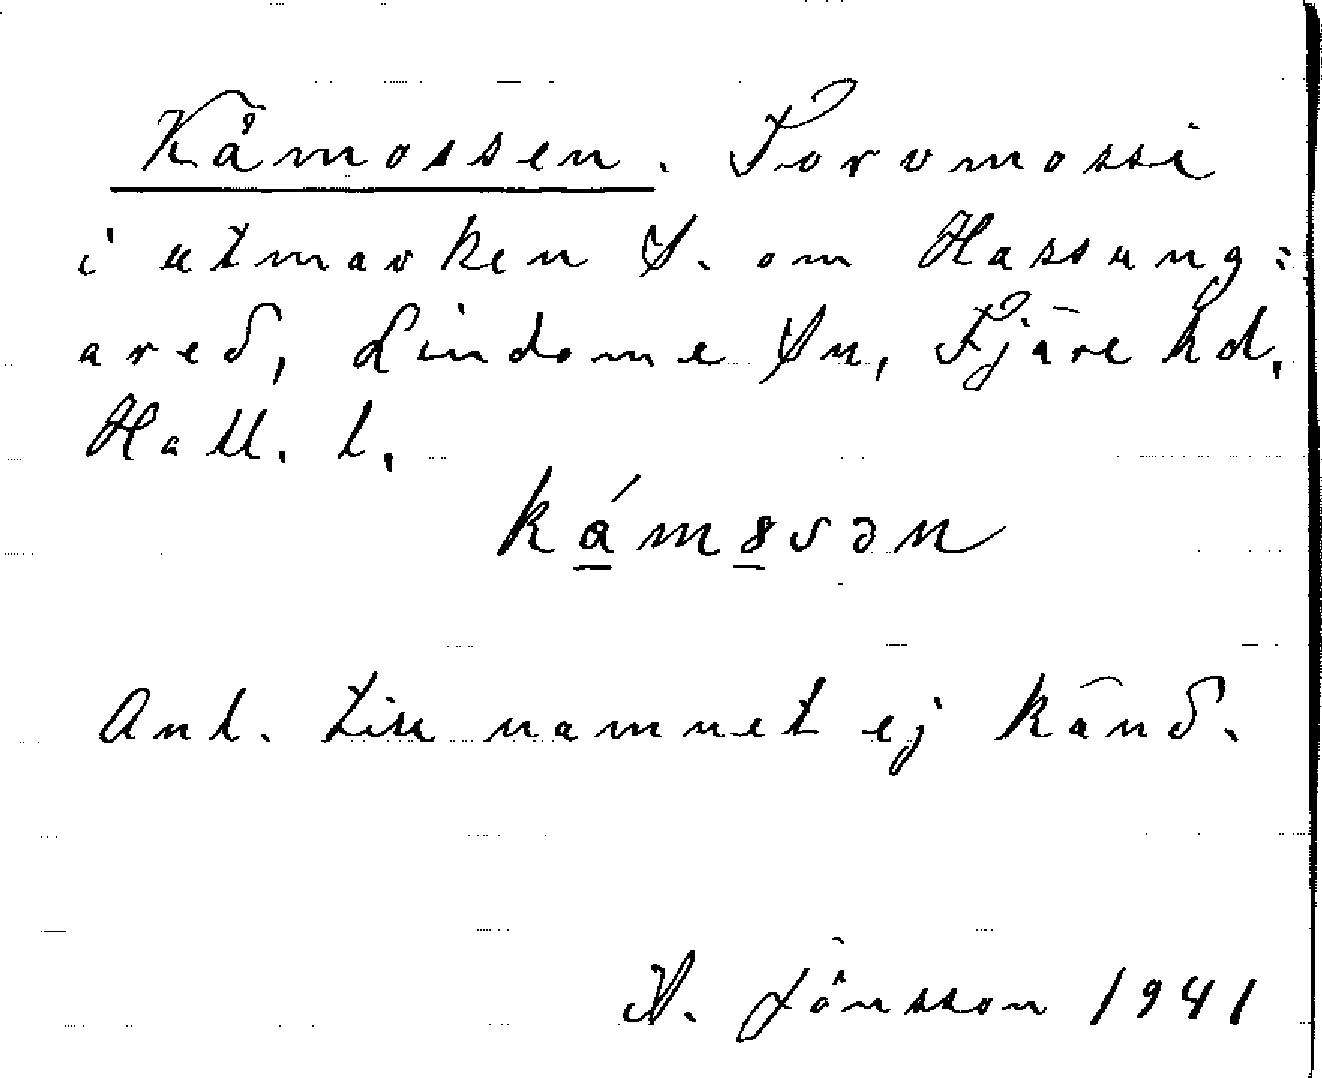 Kåmossen. Torvmosse
i utmarken S. om Hassung=
ared, Lindome Sn, Fjäre hd,
Hall. l.
kámꝏsən
Anl. till namnet ej känd.
A. Jönsson 1941